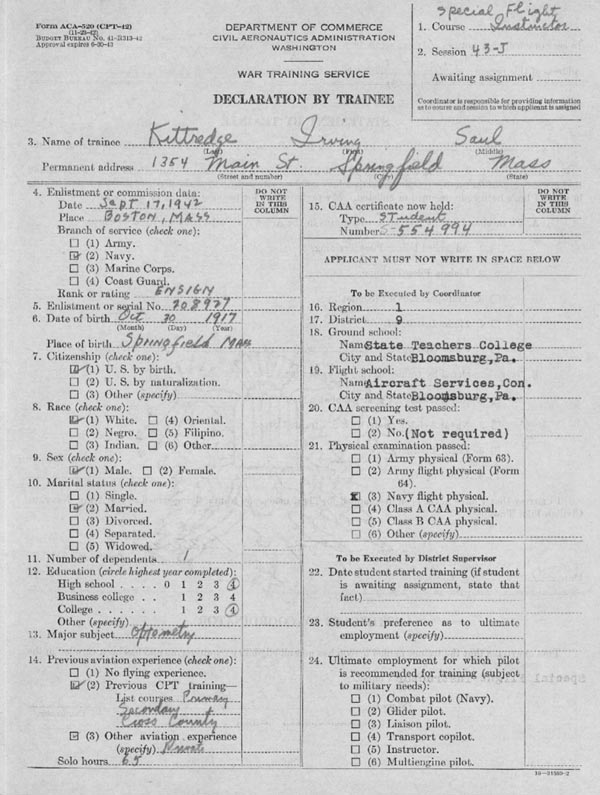 Form ACA-520 (CPT-42)
(11-23-42)
BUDGET BUREAU NO. 41-R313-42
Approval expires 6-30-43
DEPARTMENT OF COMMERCE
CIVIL AERONAUTICS ADMINISTRATION
WASHINGTON
WAR TRAINING SERVICE
DECLARATION BY TRAINEE
Special Flight
1. Course Instructor
2. Session 43-J
Awaiting assignment
Coordinator is responsible for providing information
as to course and session to which applicant is assigned
3. Name of trainee Kittredge Irving Saul
(Last) (First) (Middle)
Permanent address 1354 Main St. Springfield Mass
(Street and number) (City) (State)
4. Enlistment or commission data:
Date Sept 17, 1942
Place BOSTON, MASS
Branch of service (check one):
(1) Army.
(2) Navy.
(3) Marine Corps.
(4) Coast Guard.
Rank or rating ENSIGN
5. Enlistment or serial No. 208927
6. Date of birth Oct 30 1917
(Month) (Day) (Year)
Place of birth Springfield Mass
7. Citizenship (check one):
(1) U. S. by birth.
(2) U. S. by naturalization.
(3) Other (specify)
8. Race (check one):
(1) White. (4) Oriental.
(2) Negro. (5) Filipino.
(3) Indian. (6) Other
9. Sex (check one):
(1) Male. (2) Female.
10. Marital status (check one):
(1) Single.
(2) Married.
(3) Divorced.
(4) Separated.
(5) Widowed.
11. Number of dependents 1
12. Education (circle highest year completed):
High school 0 1 2 3 4
Business college 1 2 3 4
College 1 2 3 4
Other (specify)
13. Major subject Optometry
14. Previous aviation experience (check one):
(1) No flying experience.
(2) Previous CPT training—
List courses Primary
Secondary
Cross County
(3) Other aviation experience
(specify) Private
Solo hours 65
DO NOT
WRITE
IN THIS
COLUMN
15. CAA certificate now held:
Type Student
Number S-554994
DO NOT
WRITE
IN THIS
COLUMN
APPLICANT MUST NOT WRITE IN SPACE BELOW
To be Executed by Coordinator
16. Region 1
17. District 9
18. Ground school:
Name State Teachers College
City and State Bloomsburg, Pa.
19. Flight school:
Name Aircraft Services, Con.
City and State Bloomsburg, Pa.
20. CAA screening test passed:
(1) Yes.
(2) No. (Not required)
21. Physical examination passed:
(1) Army physical (Form 63).
(2) Army flight physical (Form
64).
(3) Navy flight physical.
(4) Class A CAA physical.
(5) Class B CAA physical.
(6) Other (specify)
To be Executed by District Supervisor
22. Date student started training (if student
is awaiting assignment, state that
fact)
23. Student's preference as to ultimate
employment (specify)
24. Ultimate employment for which pilot
is recommended for training (subject
to military needs):
(1) Combat pilot (Navy).
(2) Glider pilot.
(3) Liaison pilot.
(4) Transport copilot.
(5) Instructor.
(6) Multiengine pilot.